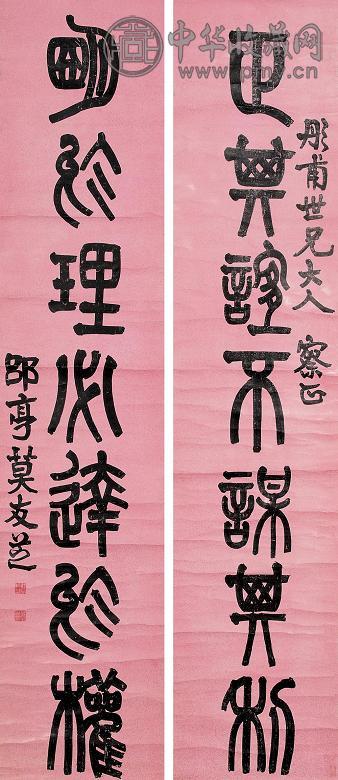 中华收藏网
彤甫世兄大人 察正
正其誼不謀其利
明於理必達於權
郘亭莫友芝